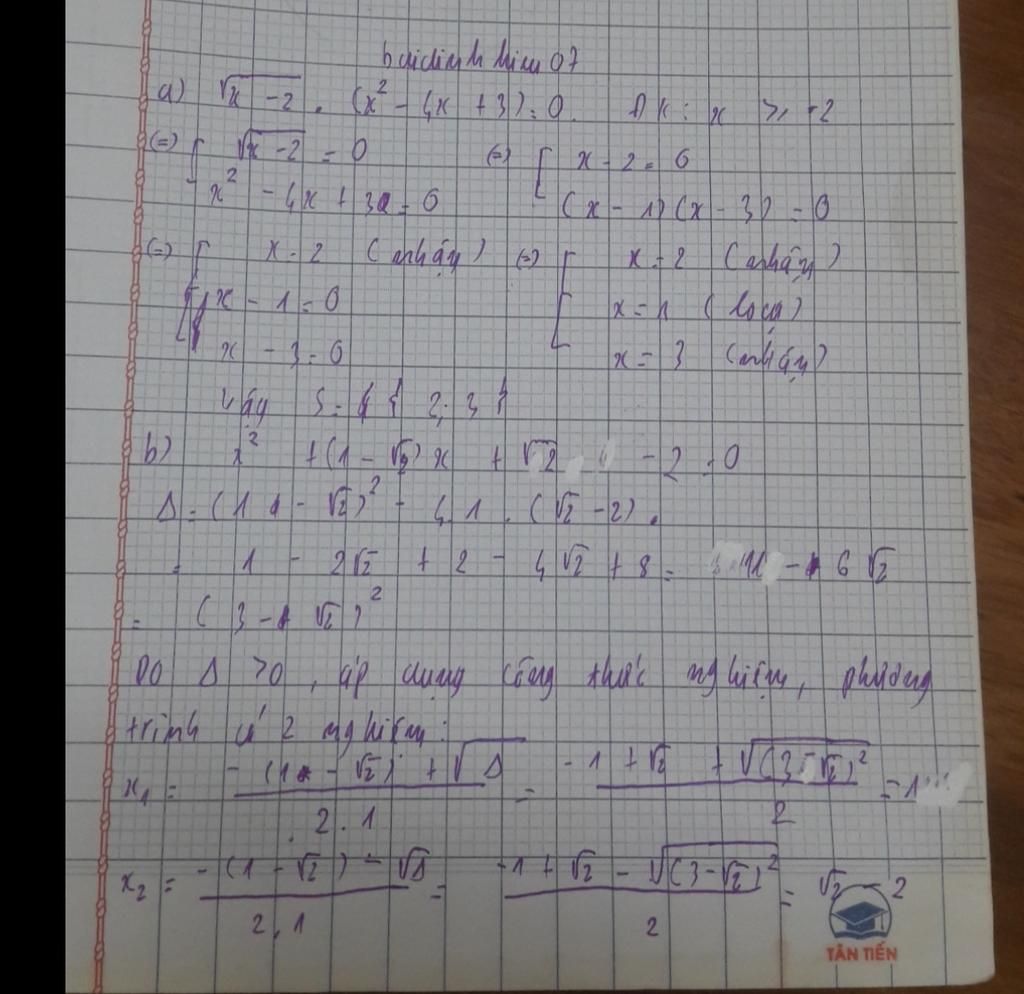 a) √(x - 2) . (x² - 4x + 3) = 0. ĐK: x ≥ 2
(=) [ √(x - 2) = 0 (=) [ x - 2 = 0
x² - 4x + 3 = 0 (x - 1)(x - 3) = 0
(=) [ x = 2 (nhận) (=) [ x = 2 (nhận)
x - 1 = 0 x = 1 (loại)
x - 3 = 0 x = 3 (nhận)
Vậy S = { 2; 3 }
b) x² + (1 - √2) x + √2 - 2 = 0
Δ = (1 - √2)² - 4.1.(√2 - 2).
= 1 - 2√2 + 2 - 4√2 + 8 = 11 - 6√2
= (3 - √2)²
Do Δ > 0, áp dụng công thức nghiệm, phương
trình có 2 nghiệm:
x₁ = (-(1 - √2) + √Δ) / (2.1) = (-1 + √2 + √((3 - √2)²)) / 2 = 1
x₂ = (-(1 - √2) - √Δ) / (2.1) = (-1 + √2 - √((3 - √2)²)) / 2 = √2 - 2
TÂN TIẾN